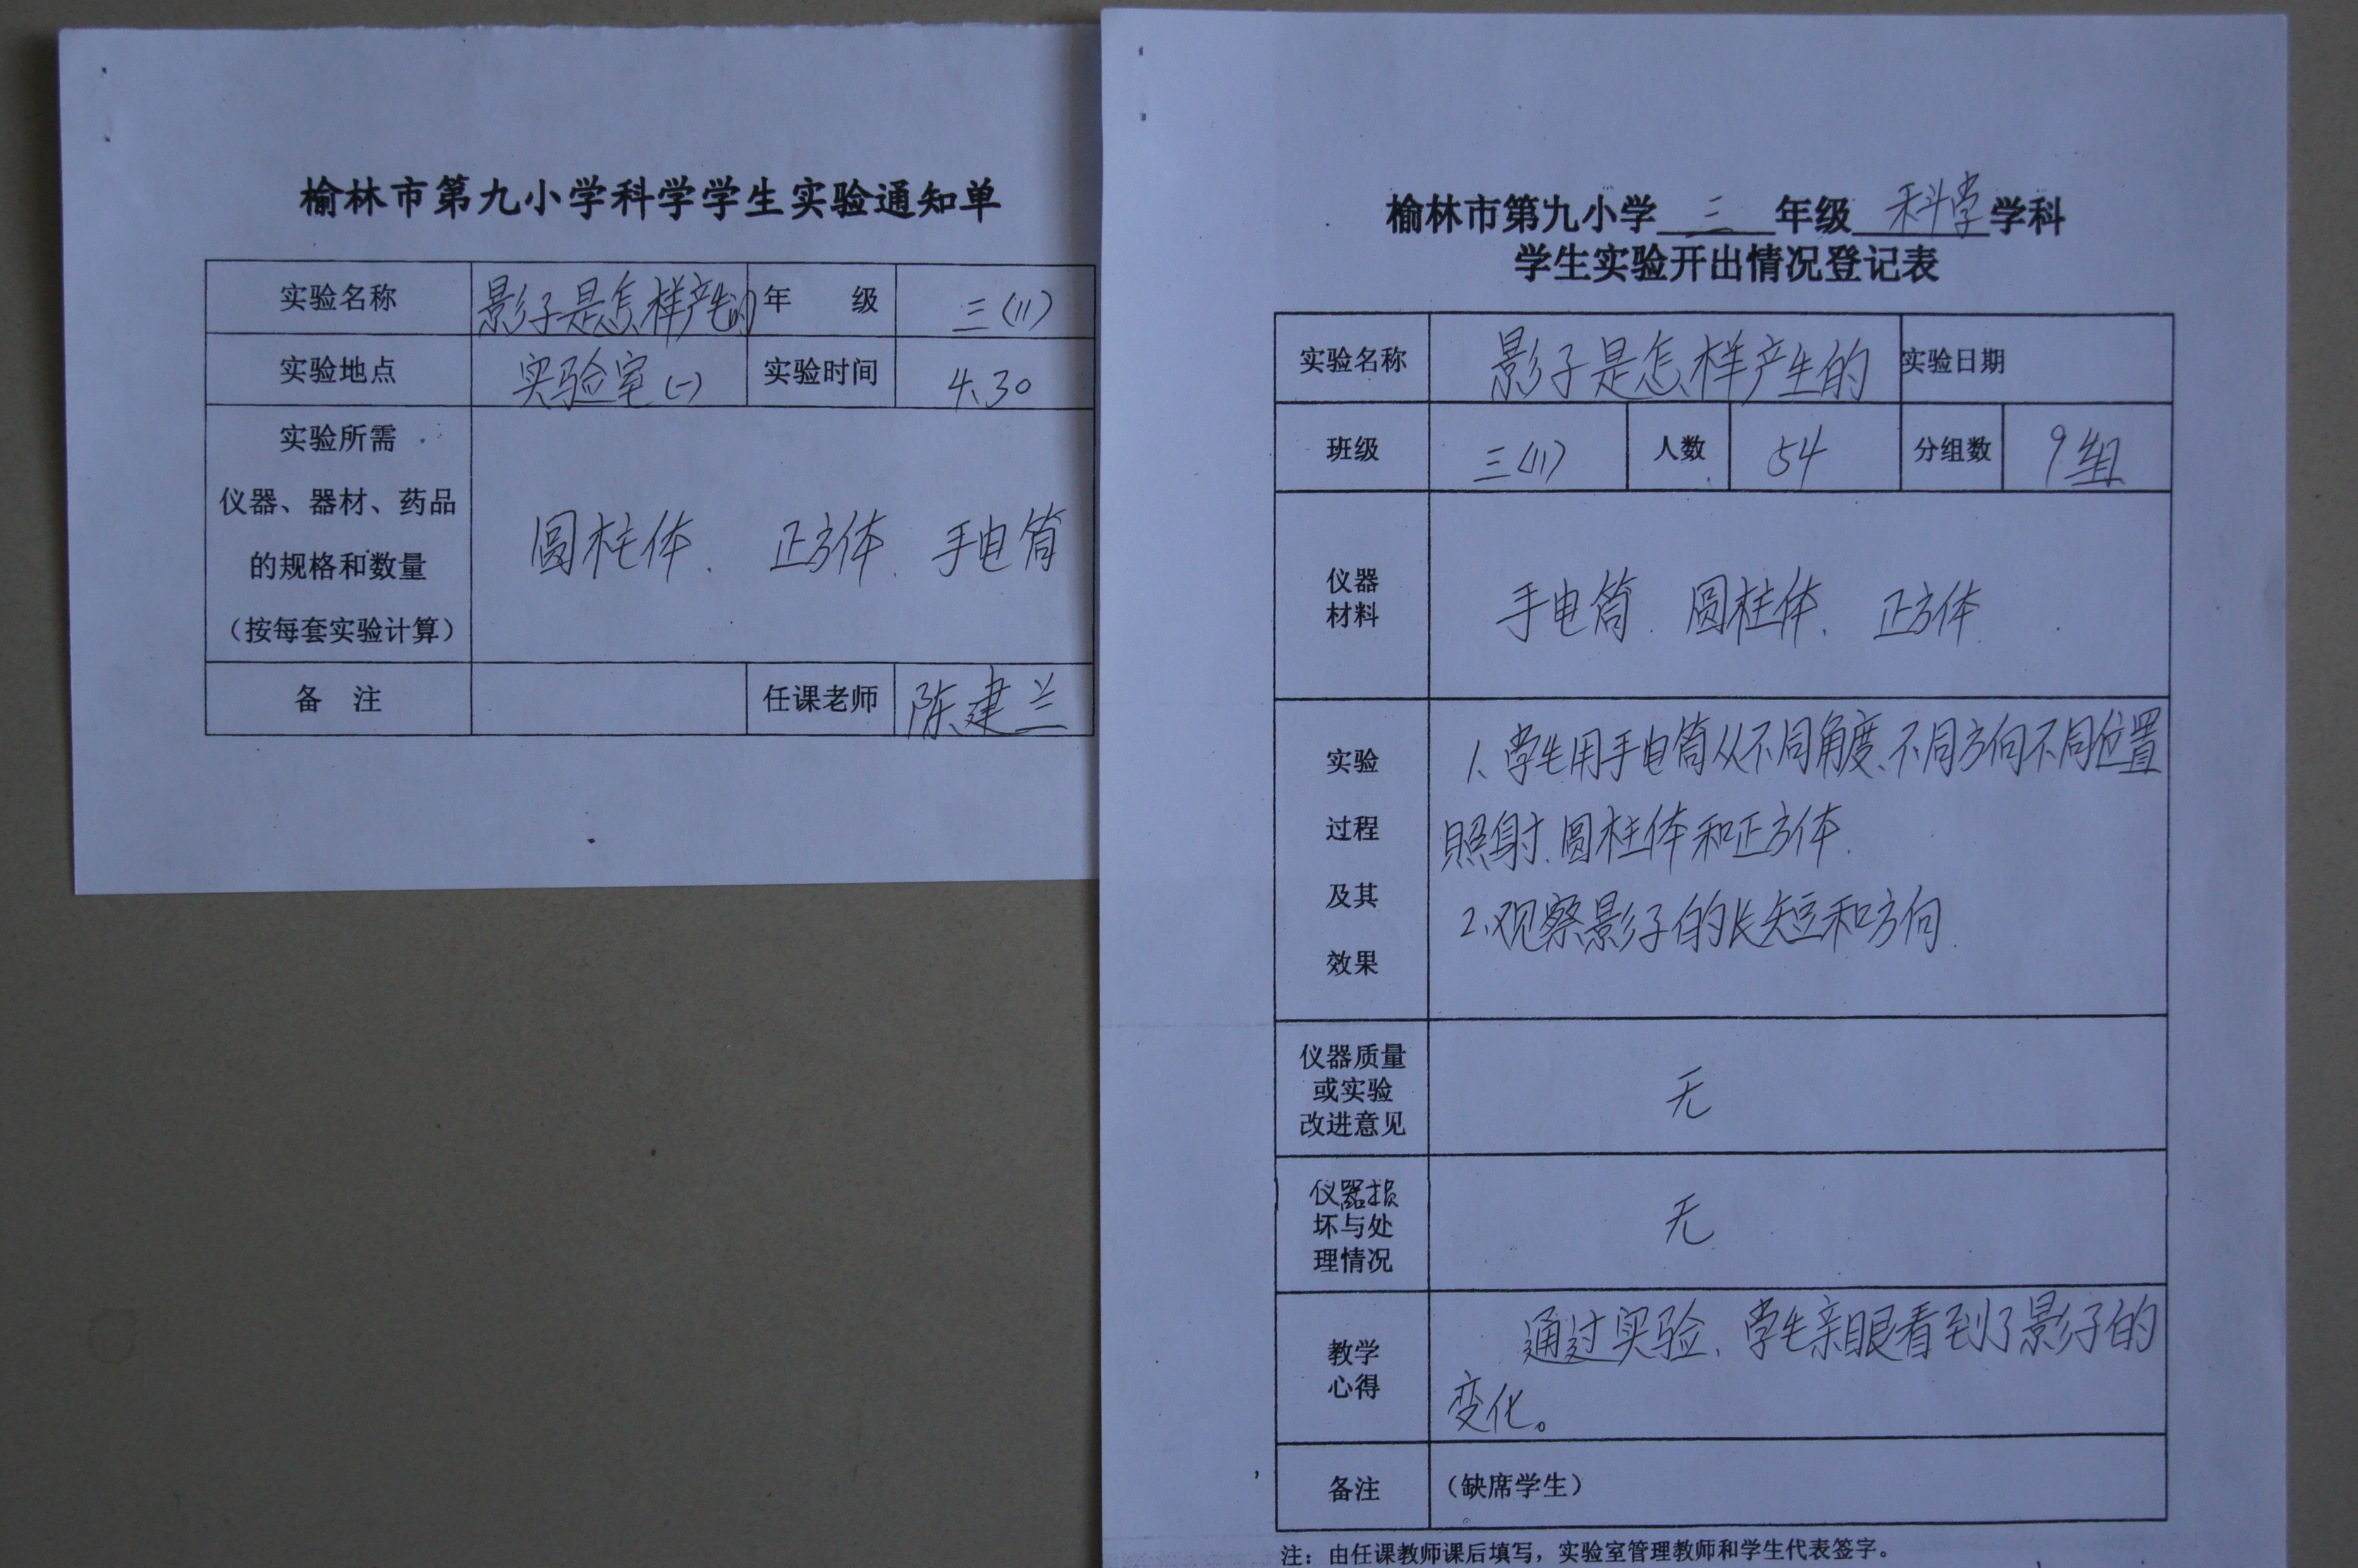 榆林市第九小学科学学生实验通知单
实验名称 影子是怎样产生的 年 级 三(11)
实验地点 实验室(一) 实验时间 4.30
实验所需
仪器、器材、药品
的规格和数量
(按每套实验计算)
圆柱体、 正方体、 手电筒
备 注 任课老师 陈建兰
榆林市第九小学 三 年级 科学 学科
学生实验开出情况登记表
实验名称 影子是怎样产生的 实验日期
班级 三(11) 人数 54 分组数 9组
仪器
材料
手电筒、 圆柱体、 正方体
实验
过程
及其
效果
1、学生用手电筒从不同角度、不同方向不同位置
照射、圆柱体和正方体.
2、观察影子的长短和方向.
仪器质量
或实验
改进意见
无
仪器损
坏与处
理情况
无
教学
心得
通过实验、学生亲眼看到了影子的
变化。
备注 (缺席学生)
注:由任课教师课后填写,实验室管理教师和学生代表签字。